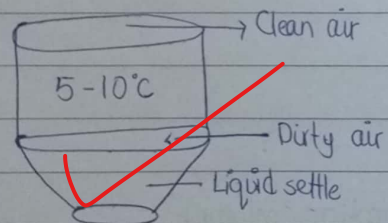 Clean air
5-10°C
Dirty air
Liquid settle